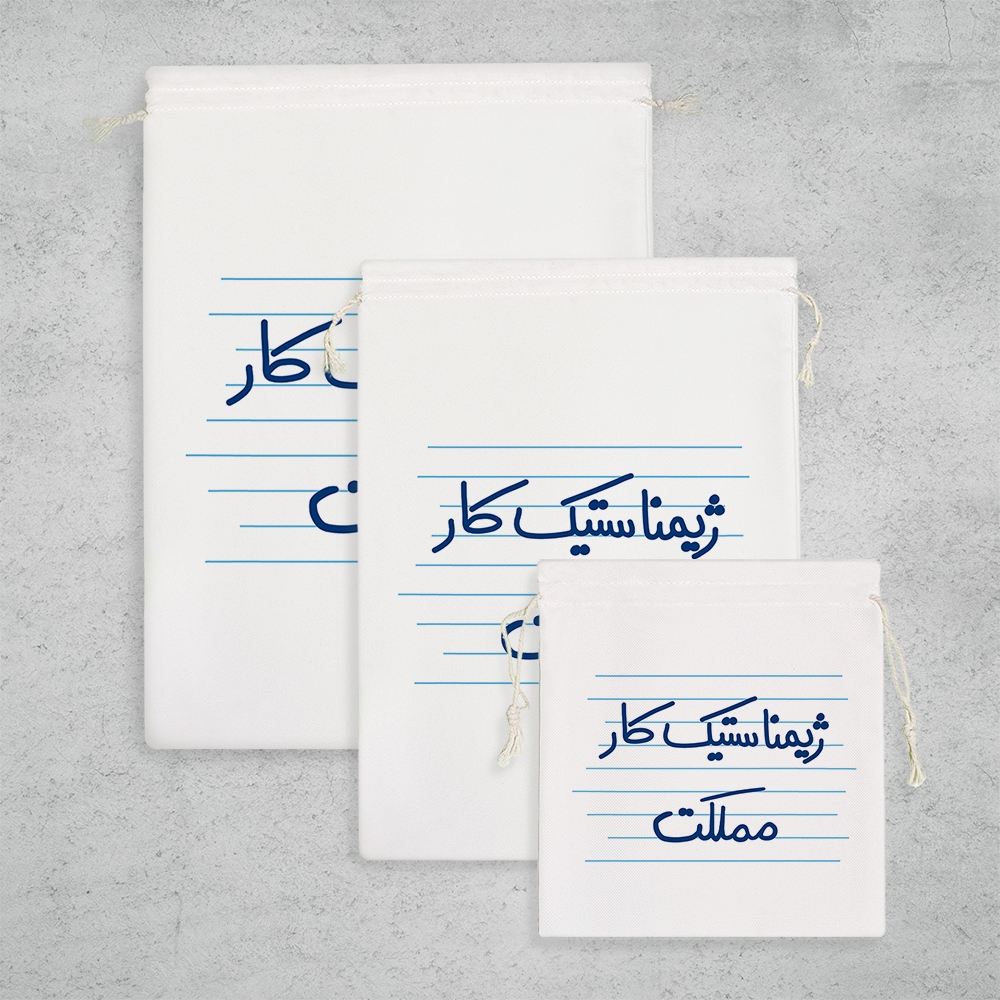 کار
ژیمناستیک کار
ژیمناستیک کار
مملکت